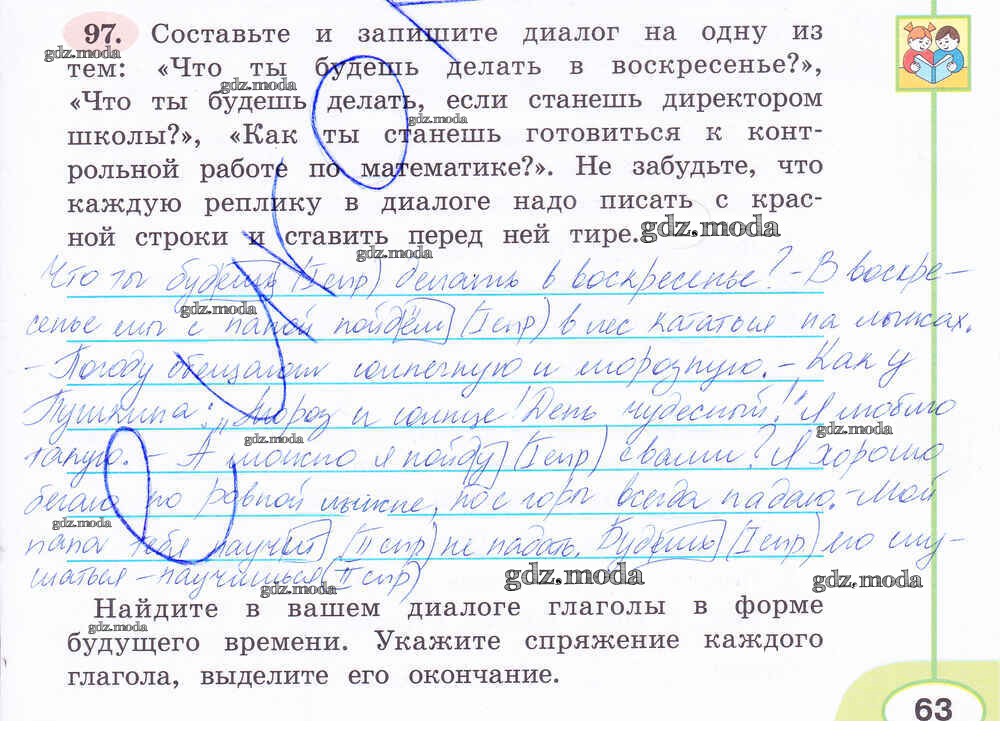 97. Составьте и запишите диалог на одну из
тем: «Что ты будешь делать в воскресенье?»,
«Что ты будешь делать, если станешь директором
школы?», «Как ты станешь готовиться к конт-
рольной работе по математике?». Не забудьте, что
каждую реплику в диалоге надо писать с крас-
ной строки и ставить перед ней тире.
gdz.moda
Что ты будешь (I спр) делать в воскресенье? - В воскре-
сенье мы с папой пойдём (I спр) в лес кататься на лыжах.
- Погоду обещали солнечную и морозную. - Как у
Пушкина: „Мороз и солнце! День чудесный!" Я люблю
такую. - А можно я пойду (I спр) с вами? Я хорошо
бегаю по ровной лыжне, но с горы всегда падаю. - Мой
папа тебя научит (II спр) не падать. Будешь (I спр) его слу-
шаться - научишься (II спр)
gdz.moda gdz.moda
Найдите в вашем диалоге глаголы в форме
будущего времени. Укажите спряжение каждого
глагола, выделите его окончание.
63